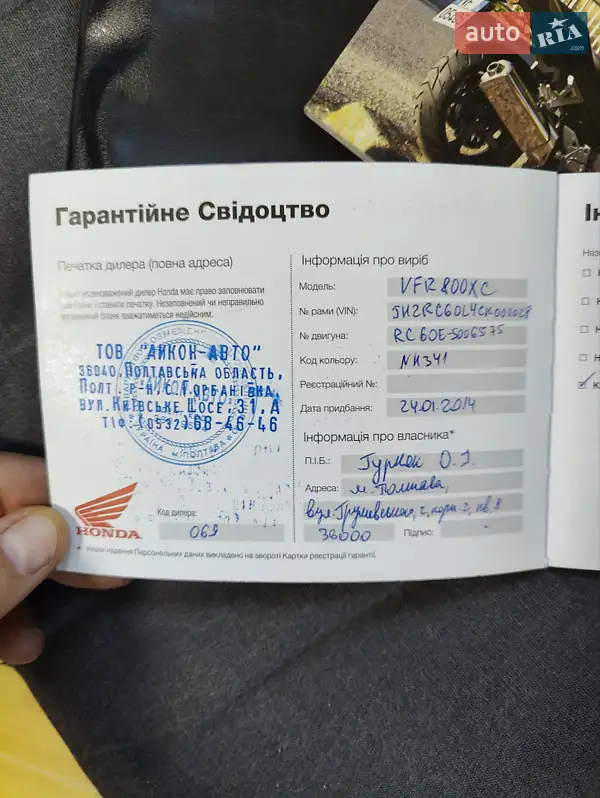 auto RIA .com
Гарантійне Свідоцтво
Печатка дилера (повна адреса)
уповноважений дилер Honda має право заповнювати
і ставити печатку. Незаповнений чи неправильно
бланк вважатиметься недійсним.
ТОВ "АЙКОН-АВТО"
36040, ПОЛТАВСЬКА ОБЛАСТЬ,
ПОЛТ. Р-Н, С. ГОРБАНІВКА,
ВУЛ. КИЇВСЬКЕ ШОСЕ, 31, А
ТІФ. (0532) 68-46-46
УКРАЇНА м. ПОЛТАВА
HONDA
Код дилера:
069
Умови надання Персональних даних викладено на звороті Картки реєстрації гарантії.
Інформація про виріб
Модель: VFR800XC
№ рами (VIN): JH2RC60L4CK000028
№ двигуна: RC60E-5006575
Код кольору: NH341
Реєстраційний №:
Дата придбання: 24.01.2014
Інформація про власника*
П.І.Б.:
Адреса: м. Полтава,
36000 Підпис:
Ін
Наз
К